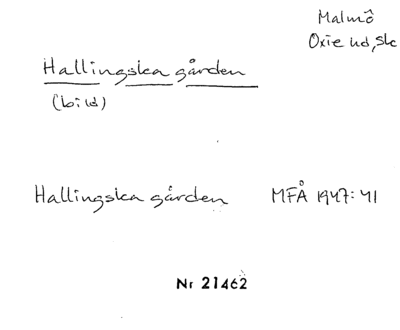 Malmö
Oxie hd, Sk
Hallingska gården
(bild)
Hallingska gården MFÅ 1947:41
Nr 21462